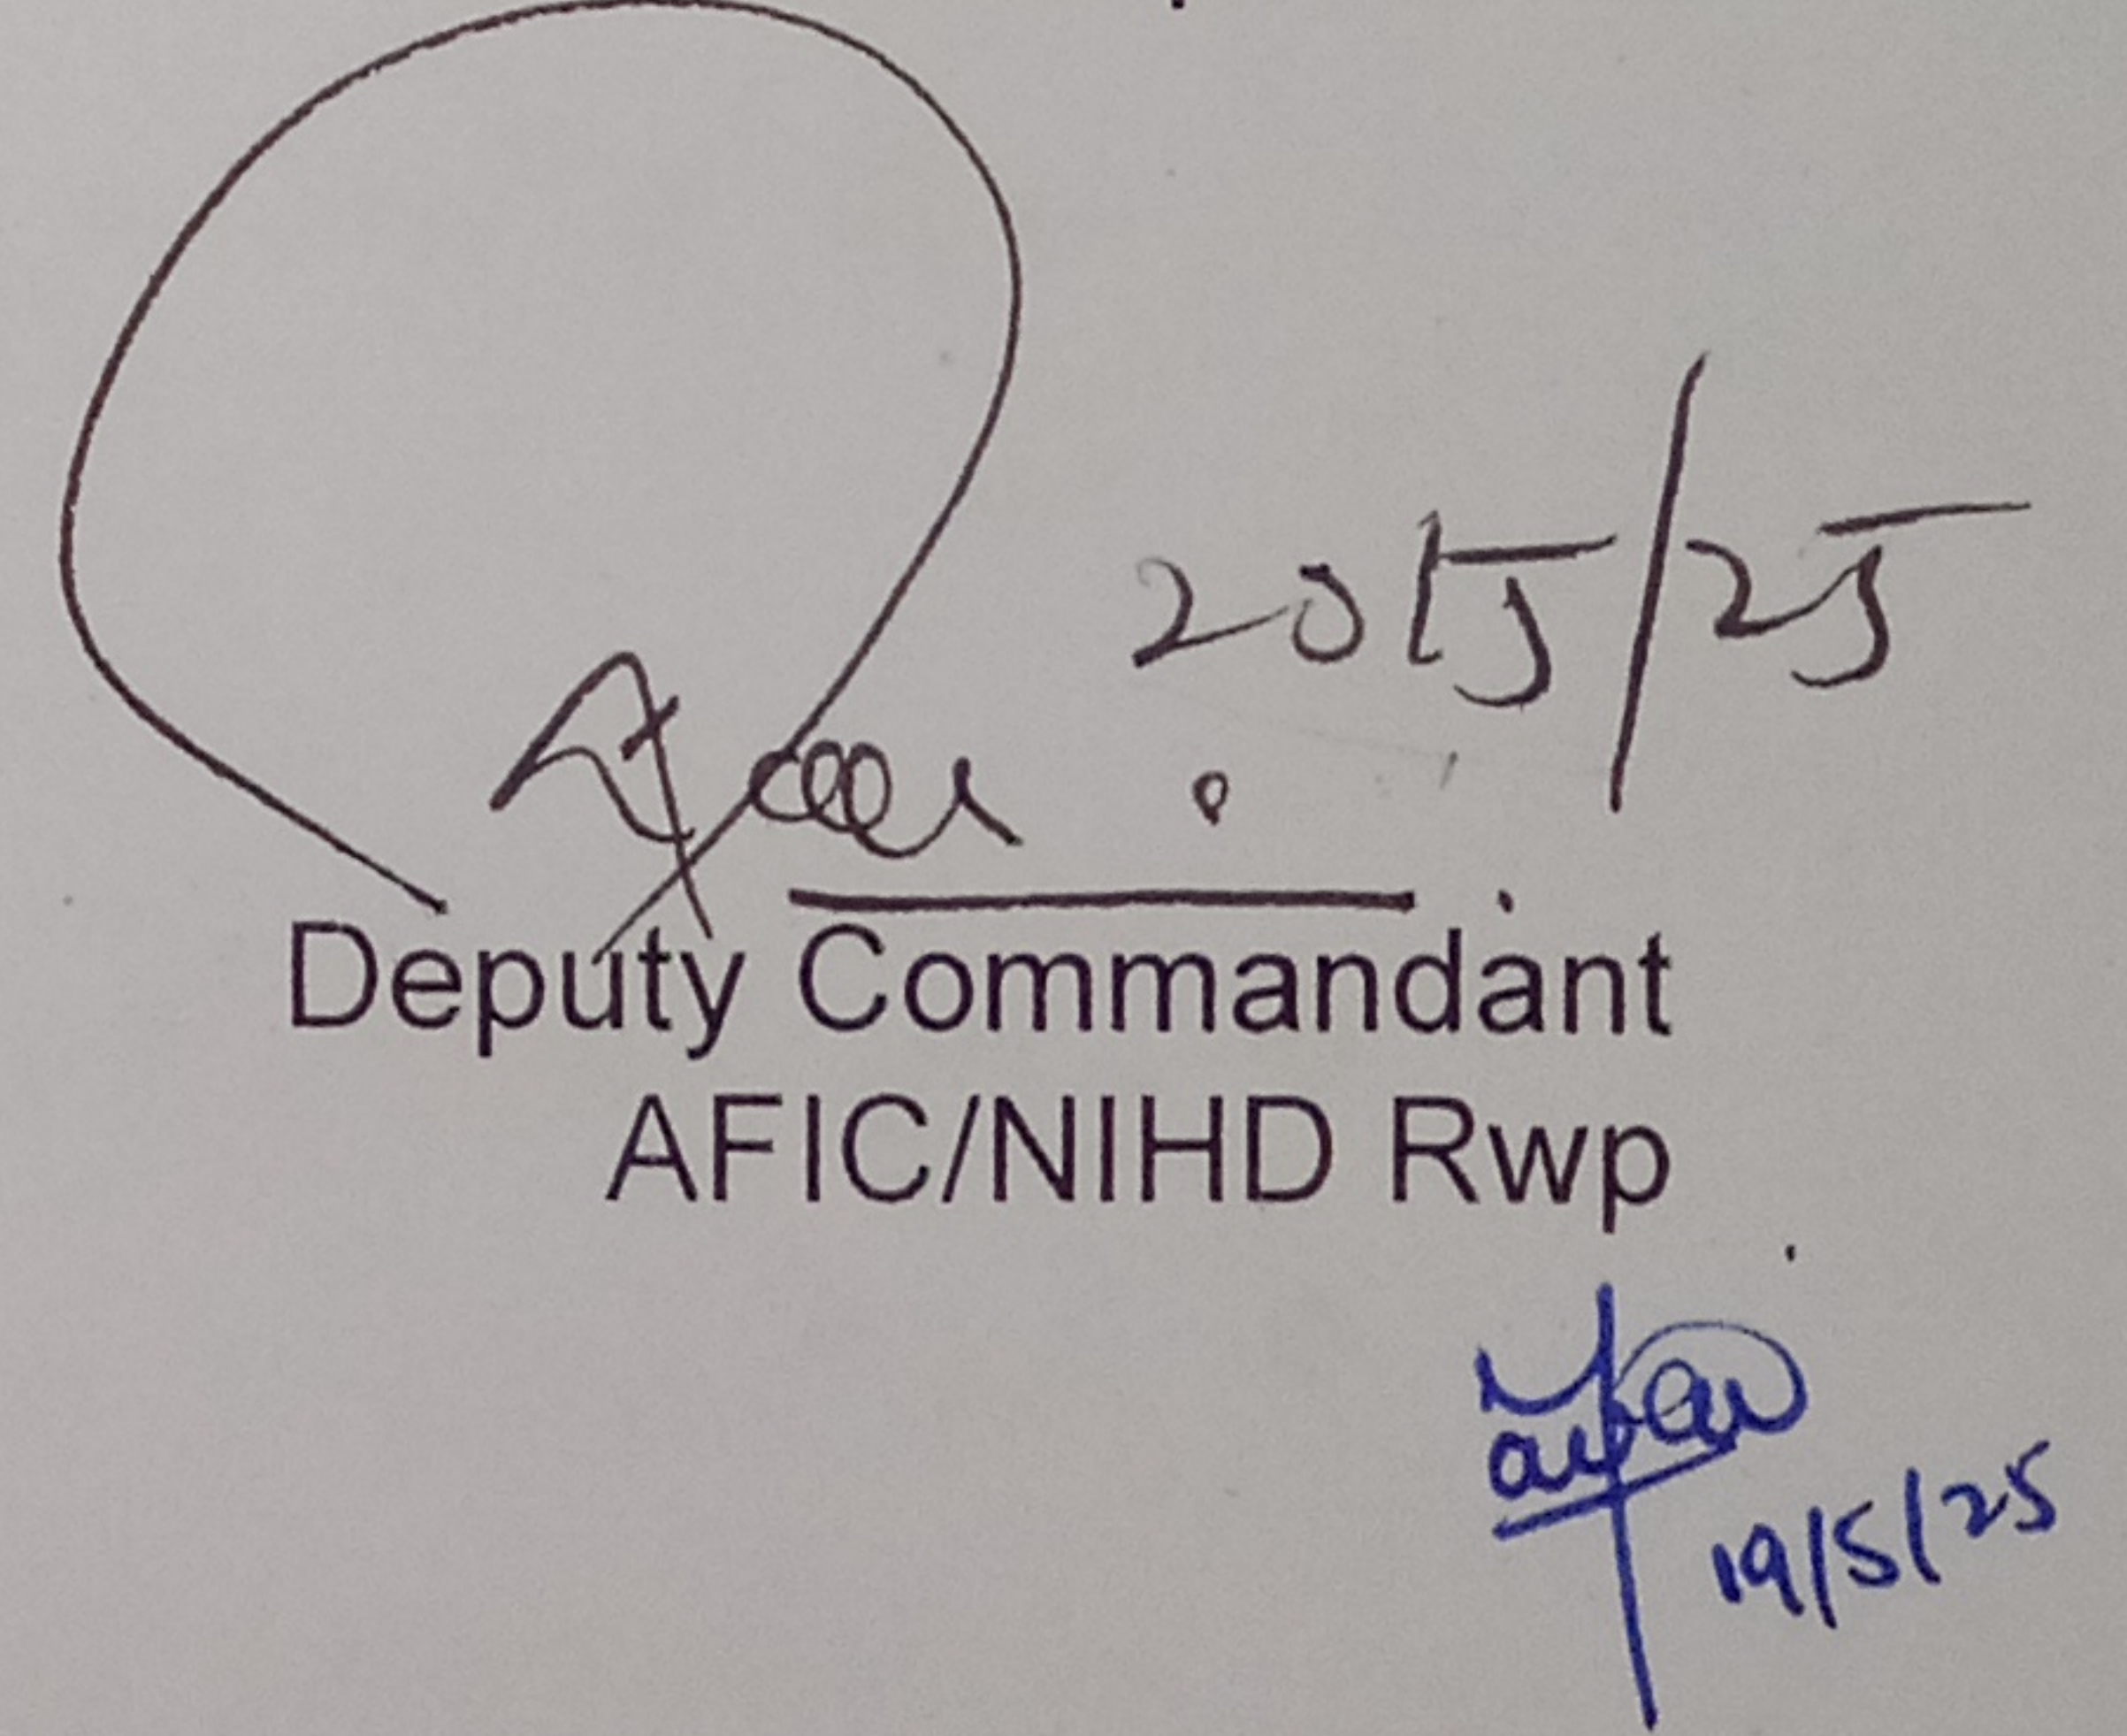 20/5/25
Deputy Commandant
AFIC/NIHD Rwp
19/5/25